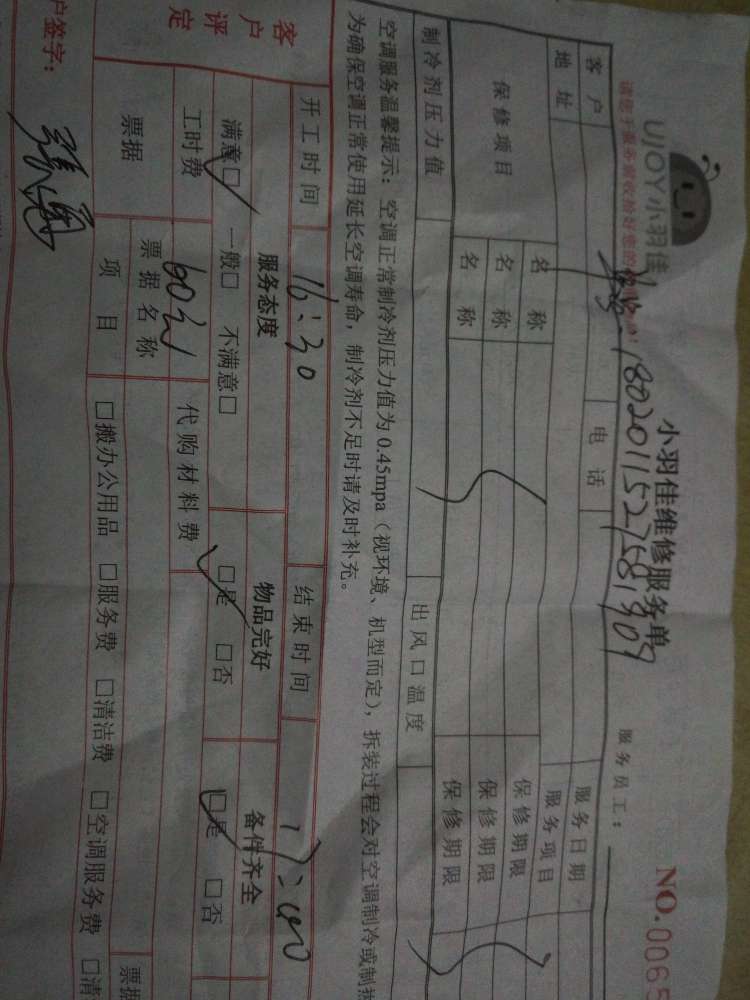 UJOY小羽佳
小羽佳维修服务单
NO.0065
服务员工：
1802011527581309
客户 电话 服务日期
地址 服务项目
保修项目 名称 保修期限
名称 保修期限
名称 保修期限
制冷剂压力值 出风口温度
空调服务温馨提示：空调正常制冷剂压力值为0.45mpa（视环境、机型而定），拆装过程会对空调制冷或制热
为确保空调正常使用延长空调寿命，制冷剂不足时请及时补充。
开工时间 16:30 结束时间 17:00
客户评定 服务态度 物品完好 备件齐全
满意□ 一般□ 不满意□ □是 □否 □是 □否
工时费 60元 代购材料费
票据 票据名称 票据
项目 □搬办公用品 □服务费 □清洁费 □空调服务费 □清
户签字：